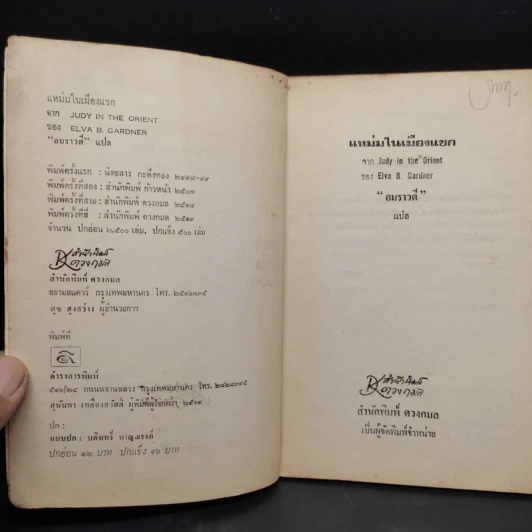 แหม่มในเมืองแขก
จาก JUDY IN THE ORIENT
ของ ELVA B. GARDNER
"อมราวดี" แปล
พิมพ์ครั้งแรก : นิตยสาร กะดึงทอง ๒๔๙๘-๙๙
พิมพ์ครั้งที่สอง : สำนักพิมพ์ ก้าวหน้า ๒๕๐๗
พิมพ์ครั้งที่สาม : สำนักพิมพ์ ดวงกมล
พิมพ์ครั้งที่สี่ : สำนักพิมพ์ ดวงกมล ๒๕๑๙
จำนวน ปกอ่อน ๒,๕๐๐ เล่ม, ปกแข็ง ๕๐๐ เล่ม
สำนักพิมพ์
ดวงกมล
สำนักพิมพ์ ดวงกมล
สยามสแควร์ กรุงเทพมหานคร โทร. ๒๕๑๖๓๓๕
สุข สูงสว่าง ผู้อำนวยการ
พิมพ์ที่
ดำรงการพิมพ์
ถนนหลานหลวง กรุงเทพมหานคร โทร.
สุนันทา เหลืองสวัสดิ์ ผู้พิมพ์ผู้โฆษณา ๒๕๑๙
ปก :
แบบปก : บดินทร์
ปกอ่อน ๑๒ บาท ปกแข็ง ๑๖ บาท
แหม่มในเมืองแขก
จาก Judy in the Orient
ของ Elva B. Gardner
"อมราวดี"
แปล
สำนักพิมพ์
ดวงกมล
สำนักพิมพ์ ดวงกมล
เป็นผู้จัดพิมพ์จำหน่าย